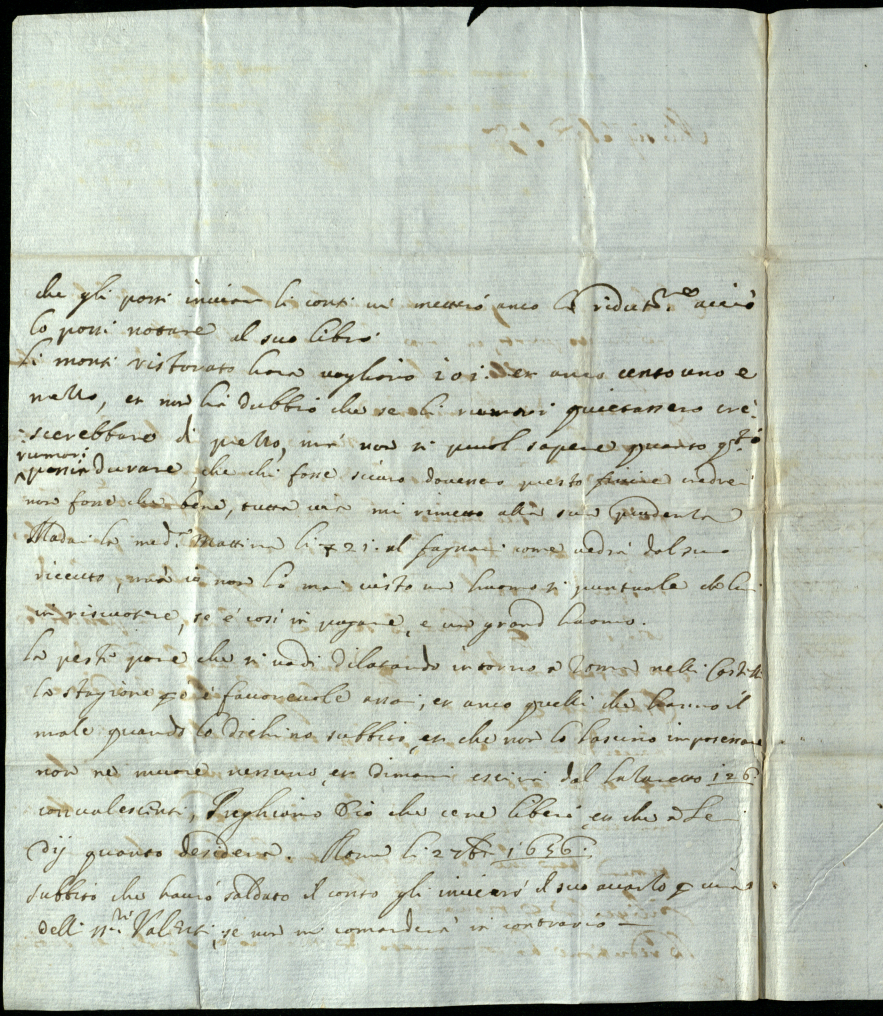 che gli possi inviare li conti vi metterò anco la ridutt.ne acciò
lo possi notare al suo libro
li monti ristorato hora vogliono 101. et anco cento uno e
mezzo, et non hà dubbio che se li rumori quietassero cre-
scerebbero di prezzo, mà non si puol sapere quanto q.sti
rumori
possino durare, che chi fosse sicuro dovessero presto finire crederei
non fosse che bene, tutta via mi rimetto alla sua prudenza
Mandai la med.a Mattina li 21. al Fagnani come vedrà dal suo
riceuto, mà io non hò mai visto un huomo sì puntuale di lui
in riscuotere, se è così in pagare, è un grand huomo.
la peste pare che si vadi dilatando intorno a Roma nelli Castelli
la stagione però è favorevole assai, et anco quelli che hanno il
male quando lo dichino subbito, et che non lo lascino impossessare
non ne muore nessuno, et dimani escirà dal lazaretto 126
convalescenti, Preghiamo Dio che ce ne liberi, et che à Lei
dij quanto desidera. Roma li 2 7bre 1656.
subbito che haverò saldato il conto gli invierò il suo quarto
delli ss.ri Valenti, se non mi comanderà in contrario